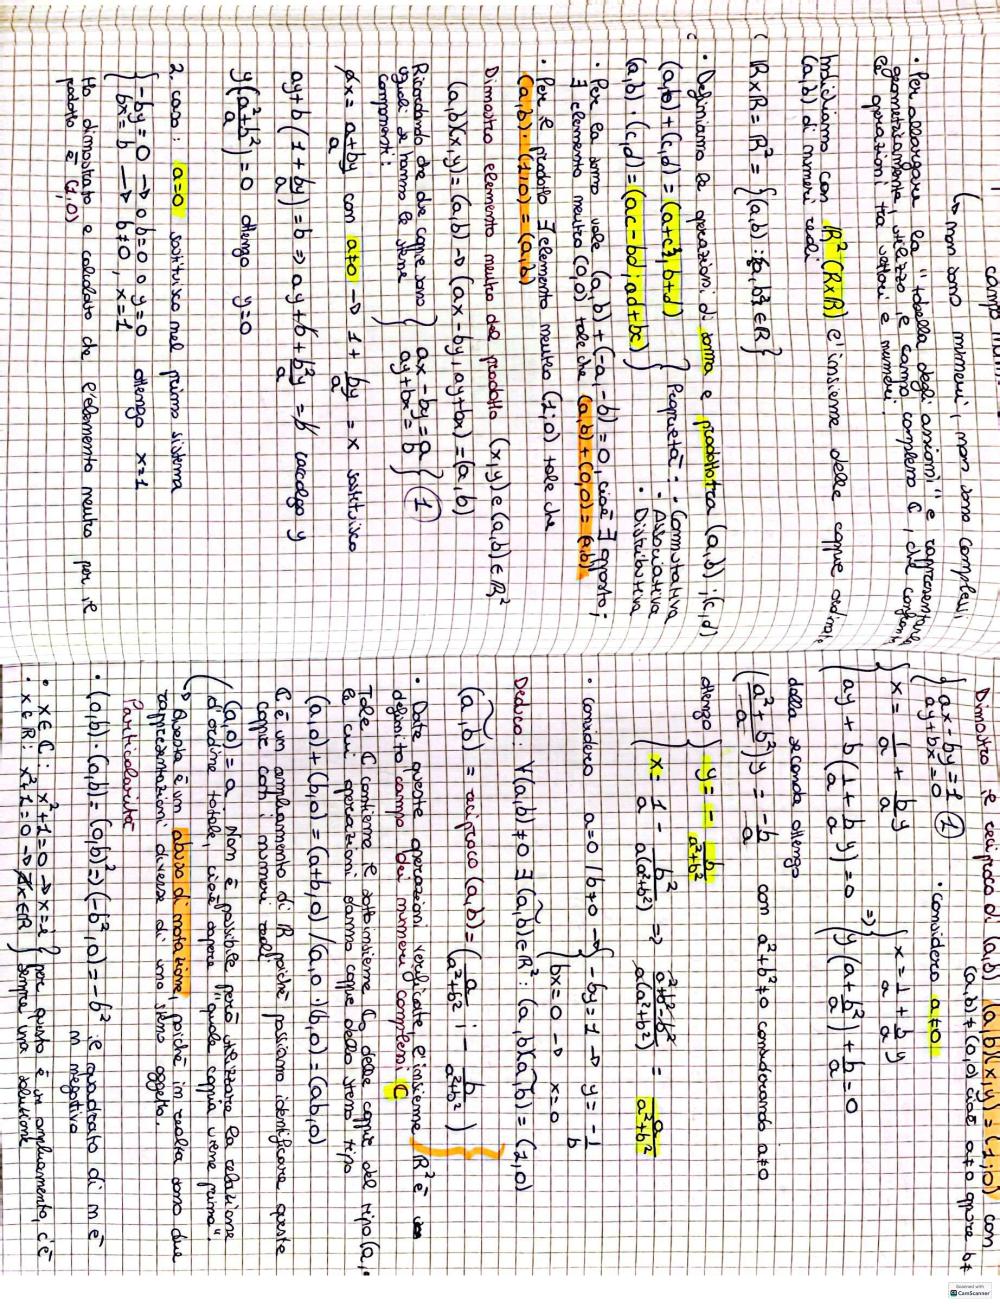 campo num
↳ non sono numeri, non sono complessi
• Per allargare la "tabella degli assiomi" e rappresentarla
geometricamente, utilizzo il campo complesso C, che
le operazioni tra vettori e numeri.
Indichiamo con R² (RxR) l'insieme delle coppie ordinate
(a,b) di numeri reali
RxR = R² = {(a,b) : {a,b} ∈ R}
• Definiamo le operazioni di somma e prodotto tra (a,b) ; (c,d)
(a,b) + (c,d) = (a+c; b+d) } Proprietà: • Commutativa
(a,b) · (c,d) = (ac-bd; ad+bc) • Associativa
• Distributiva
• Per la somma vale (a,b) + (-a,-b) = 0, cioè ∃ opposto;
∃ elemento neutro (0,0) tale che (a,b) + (0,0) = (a,b)
• Per il prodotto ∃ elemento neutro (1;0) tale che
(a,b) · (1;0) = (a,b)
Dimostro elemento neutro del prodotto (x,y) e (a,b) ∈ R²
(a,b)(x,y) = (a,b) → (ax-by, ay+bx) = (a,b)
Ricordando che due coppie sono } ax-by=a
uguali se hanno le stesse ay+bx=b } ①
componenti:
x = a+by/a con a≠0 → 1 + by/a = x sostituisco
ay+b(1+by/a) = b ⇒ ay+b+b²y/a = b raccolgo y
y(a²+b²/a) = 0 ottengo y=0
2. caso: a=0 sostituisco nel primo sistema
{ -by=0 → b=0 o y=0 ottengo x=1
{ bx=b → b≠0, x=1
Ho dimostrato e calcolato che l'elemento neutro per il
prodotto è (1,0)
Dimostro il reciproco di (a,b) (a,b)(x,y) = (1;0) con
(a,b) ≠ (0,0) cioè a≠0 oppure b≠
{ ax-by=1
{ ay+bx=0 ① • considero a≠0
{ x = 1/a + b/a y
{ ay + b(1/a + b/a y) = 0 ⇒ { x = 1/a + b/a y
{ y(a + b²/a) + b/a = 0
dalla seconda ottengo
(a²+b²/a)y = -b/a con a²+b²≠0 considerando a≠0
ottengo { y = - b/a²+b²
{ x = 1/a - b²/a(a²+b²) ⇒ a²+b²-b²/a(a²+b²) = a/a²+b²
• considero a=0 / b≠0 → { -by=1 → y=-1/b
{ bx=0 → x=0
Deduco: ∀(a,b)≠0 ∃ (a,b)~ ∈ R² : (a,b)(a,b)~ = (1,0)
(a,b)~ = reciproco (a,b) = (a/a²+b² ; - b/a²+b²)
• Date queste operazioni verificate, l'insieme R² è
definito campo dei numeri complessi C
Tale C contiene il sottoinsieme C₀ delle coppie del tipo (a,
le cui operazioni danno coppie dello stesso tipo
(a,0) + (b,0) = (a+b,0) / (a,0)·(b,0) = (ab,0)
C è un ampliamento di R poiché possiamo identificare queste
coppie con i numeri reali
(a,0) = a. Non è possibile però utilizzare la relazione
d'ordine totale, cioè sapere "quale coppia viene prima".
↳ Questa è un abuso di notazione, poiché in realtà sono due
rappresentazioni diverse di uno stesso oggetto.
Particolarità
• (0,b) · (0,b) = (0,b)² ⇒ (-b²,0) = -b² il quadrato di m è
m negativo
• x ∈ C : x²+1=0 → x=i } per questo è un ampliamento, c'è
• x ∈ R : x²+1=0 → ∄x∈R } sempre una soluzione
Scanned with
CamScanner